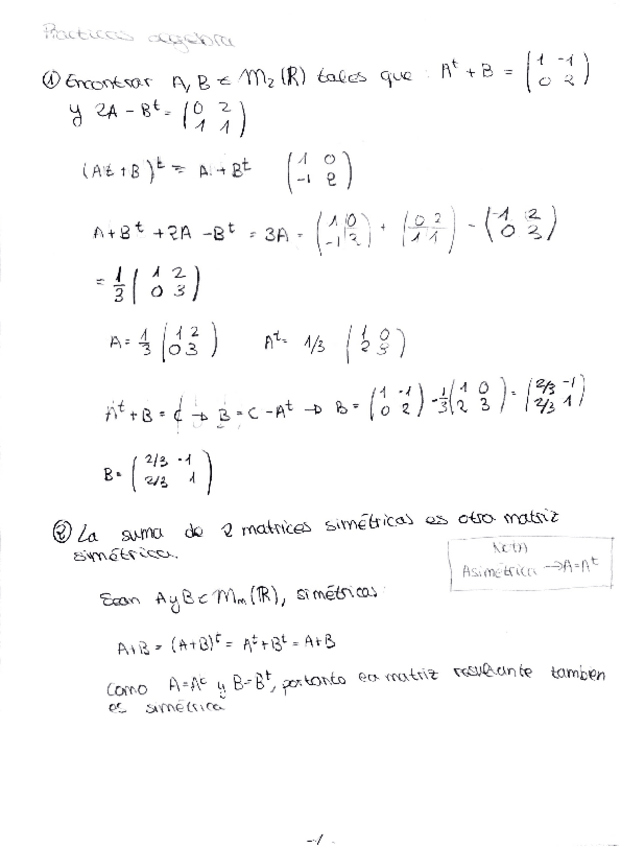 Practicas algebra
① Encontrar A, B ∈ M₂(ℝ) tales que: Aᵗ + B = (1 -1; 0 2)
y 2A - Bᵗ = (0 2; 1 1)
(At + B)ᵗ = A + Bᵗ (1 0; -1 2)
A + Bᵗ + 2A - Bᵗ = 3A = (1 0; -1 2) + (0 2; 1 1) - (-1 2; 0 3)
= 1/3 (1 2; 0 3)
A = 1/3 (1 2; 0 3) Aᵗ = 1/3 (1 0; 2 3)
Aᵗ + B = C → B = C - Aᵗ → B = (1 -1; 0 2) - 1/3 (1 0; 2 3) = (2/3 -1; 2/3 1)
B = (2/3 -1; 2/3 1)
② La suma de 2 matrices simétricas es otra matriz
simétrica.
NOTA
A simétrica → A = Aᵗ
Sean A y B ∈ Mₘ(ℝ), simétricas
A+B = (A+B)ᵗ = Aᵗ + Bᵗ = A+B
Como A=Aᵗ y B=Bᵗ, por tanto la matriz resultante tambien
es simétrica